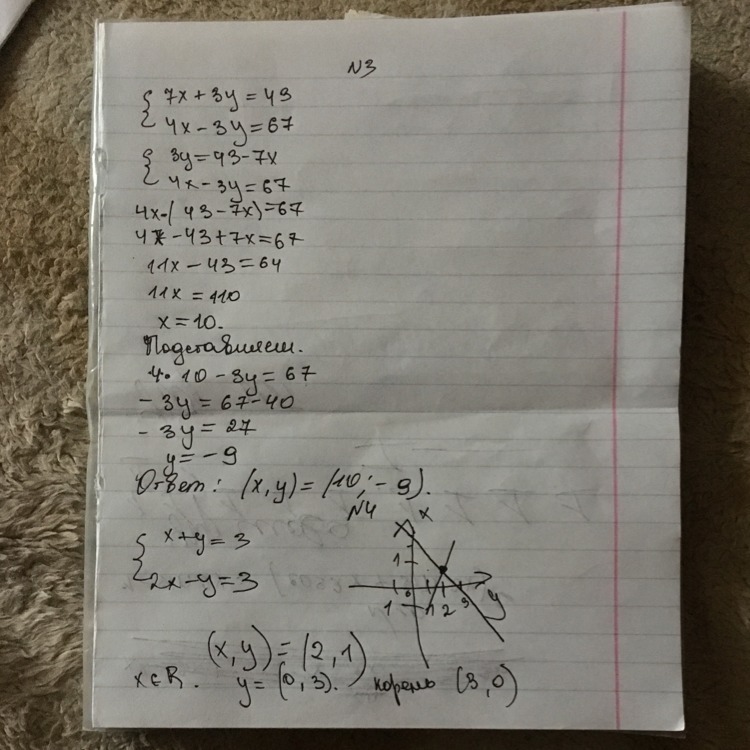 N3
7x + 3y = 43
4x - 3y = 67
3y = 43 - 7x
4x - 3y = 67
4x - (43 - 7x) = 67
4x - 43 + 7x = 67
11x - 43 = 64
11x = 110
x = 10.
Подставляем.
4 · 10 - 3y = 67
- 3y = 67 - 40
- 3y = 27
y = - 9
Ответ: (x, y) = (10; - 9).
N4
x + y = 3
2x - y = 3
x
1
1
1 2 3
y
(x, y) = (2, 1)
x ∈ R. y = (0, 3). корень (3, 0)